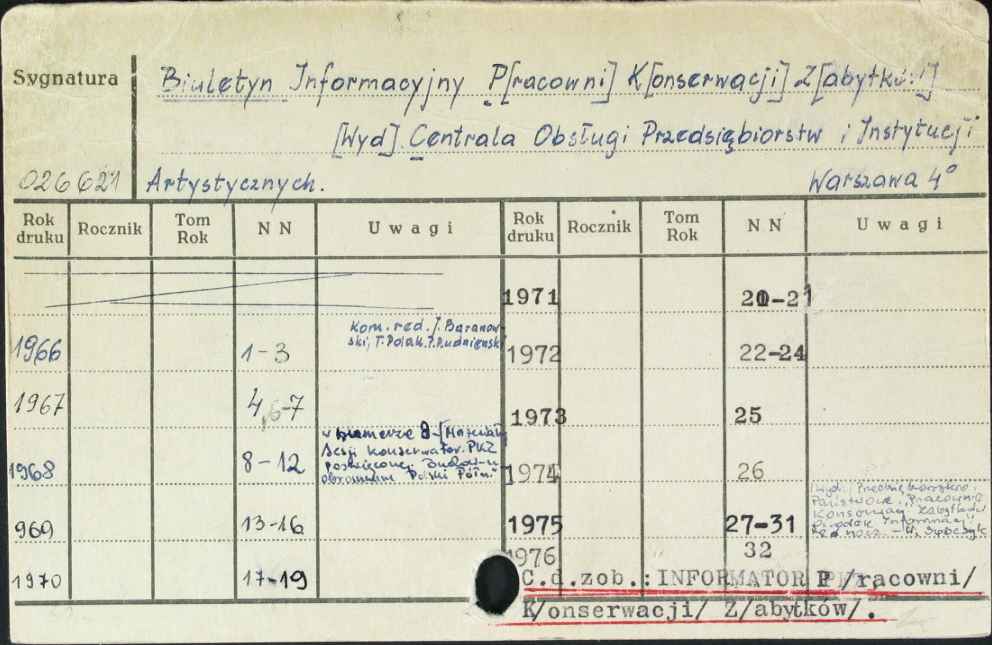 Sygnatura
Biuletyn Informacyjny P[racowni] K[onserwacji] Z[abytków]
[Wyd]. Centrala Obsługi Przedsiębiorstw i Instytucji
026621 Artystycznych. Warszawa 4°
Rok druku Rocznik Tom Rok NN Uwagi Rok druku Rocznik Tom Rok NN Uwagi
1971 20-21
1966 1-3 kom. red. J. Baranow-
ski, T. Polak, 1972 22-24
1967 4,6-7 1973 25
1968 8-12 w numerze 8-[Materiały
Sesji Konserwator. PKZ
poświęconej
Polski Półn.
1974 26
969 13-16 1975 27-31
[wyd.: Przedsiębiorstwo
Państwowe Pracownie
Konserwacji Zabytków
Ośrodek Informacji
1976 32
1970 17-19
C.d.zob.: INFORMATOR P/racowni/
K/onserwacji/ Z/abytków/.